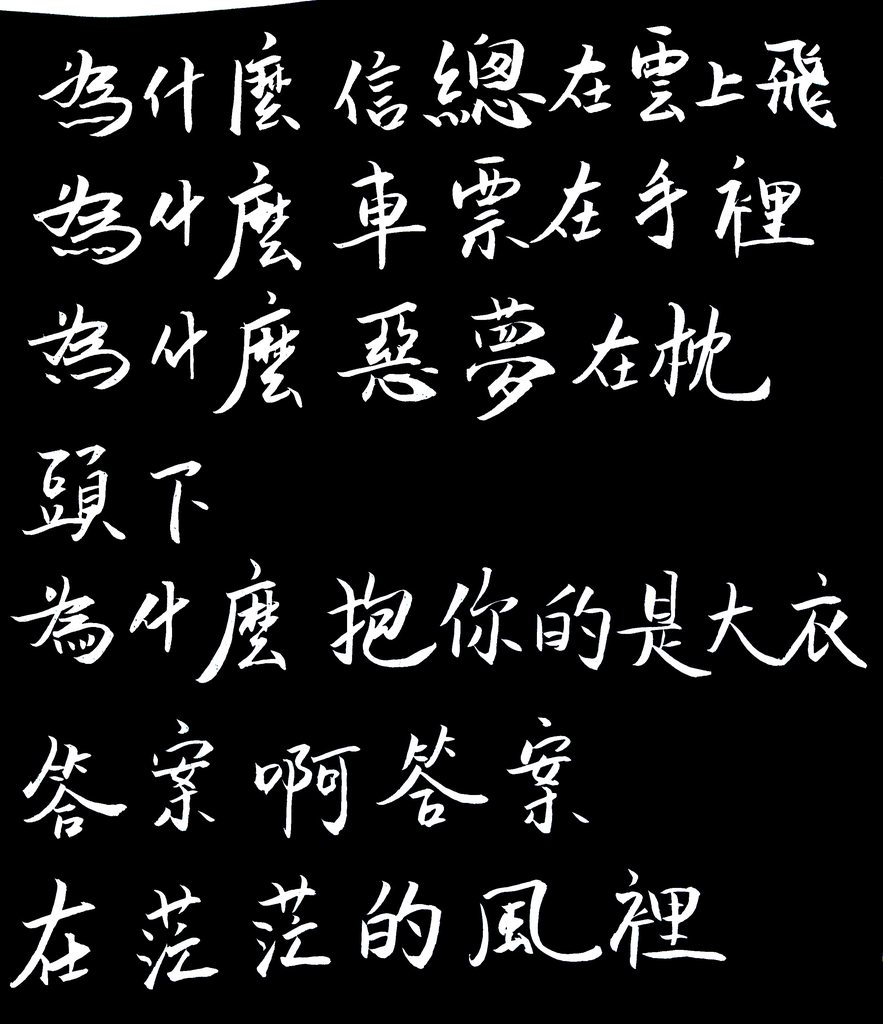 為什麼 信總在雲上飛
為什麼 車票在手裡
為什麼 惡夢在枕
頭下
為什麼 抱你的是大衣
答案啊答案
在茫茫的風裡